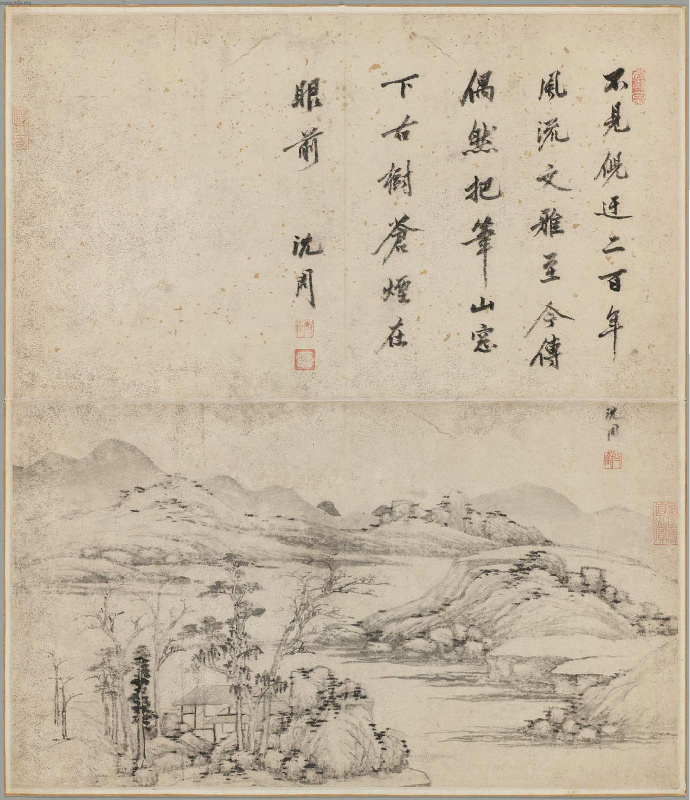 不見倪迂二百年
風流文雅至今傳
偶然把筆山窓
下古樹蒼煙在
眼前 沈周
沈周